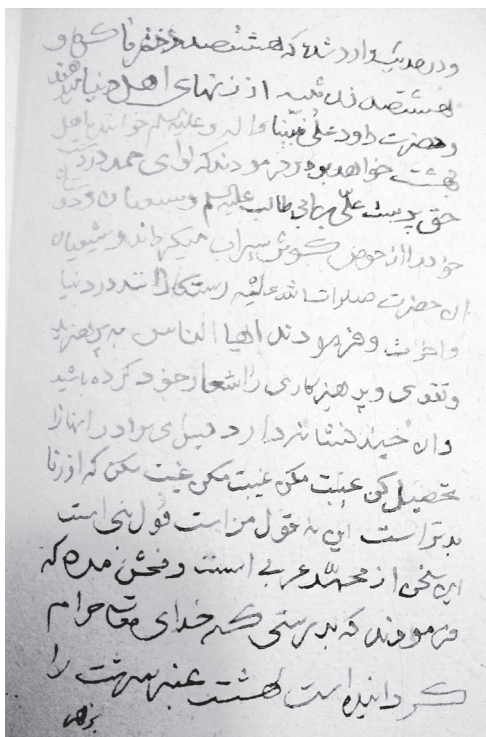 و در حدیث وارد شده که هشتصد دختر باکره و
هشتصد زن ثیبه از زنهای اهل دنیا بدهند
و حضرت داود علی نبینا و اله و علیه سلم خوانند باهل
بهشت خواهد بود و فرمودند که لوای حمد در دست
حق پرست علی بن ابی طالب علیه سلم و شیعیان و دو
خود را از حوض کوثر سیراب میگرداند و شیعیان
ان حضرت صلوات الله علیه رستگارانند در دنیا
و اخرت و فرمودند ایها الناس به پرهیزید
و تقوی و پرهیزکاری را شعار خود کرده باشید
وان چند نشانه دارد میل ی برادر انها را
تحصیل کن غیبت مکن غیبت مکن غیبت مکن که از زنا
بدتر است این نه قول من است قول نبی است
این سخن از محمد عربی است و فحش مده که
فرمودند که بدرستی که خدای تعالی حرام
گردانیده است بهشت عنبر سرشت را
بر هر